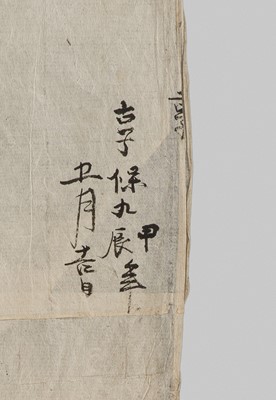 享保九甲辰年
五月吉日